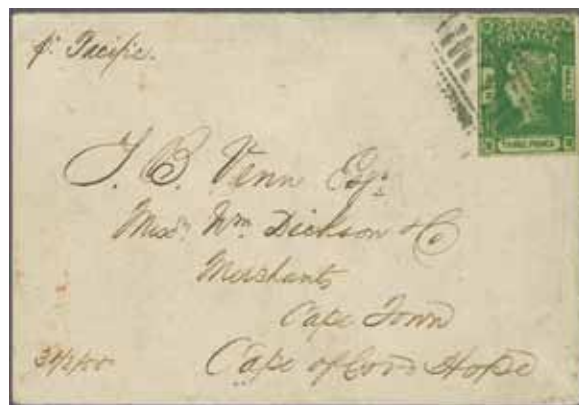 pr. Pacific.
THREE PENCE
J. B. Venn Esqr
Messrs Wm Dickson & Co
Merchants
Cape Town
Cape of Good Hope